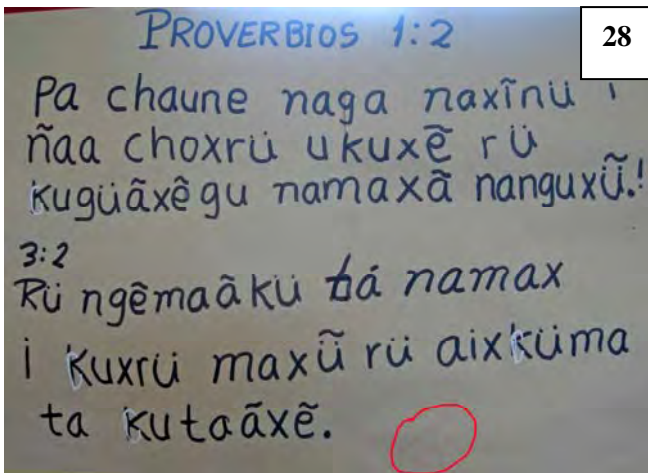 PROVERBIOS 1:2
28
Pa chaune naga naxĩnü i
ñaa choxrü ukuxẽ rü
kugüãxêgu namaxã nanguxü̃.!
3:2
Rü ngêmaãkü tá namax
i kuxrü maxü̃ rü aixküma
ta kutaãxẽ.